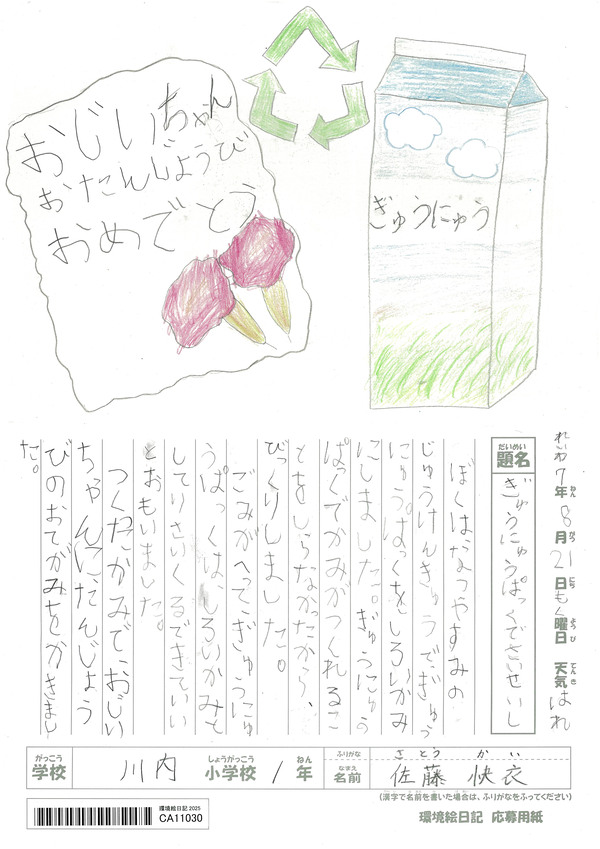 おじいちゃん
おたんじょうび
おめでとう
ぎゅうにゅう
れいわ7年8月21日もく曜日 天気はれ
ねん がつ にち ようび てんき
だいめい
題名
ぎゅうにゅうぱっくでさいせいし
ぼくはなつやすみの
じゆうけんきゅうでぎゅう
にゅうぱっくをしろいかみ
にしました。ぎゅうにゅう
ぱっくでかみがつくれるこ
とをしらなかったから、
びっくりしました。
ごみがへってぎゅうにゅ
うぱっくはしろいかみて
してりさいくるできていい
とおもいました。
つくたかみで、おじい
ちゃんにたんじょう
びのおてがみをかきまし
た。
がっこう しょうがっこう ねん ふりがな さとう かい
学校 川内 小学校 1年 なまえ 名前 佐藤 快衣
(漢字で名前を書いた場合は、ふりがなをふってください)
環境絵日記 2025
CA11030
環境絵日記 応募用紙